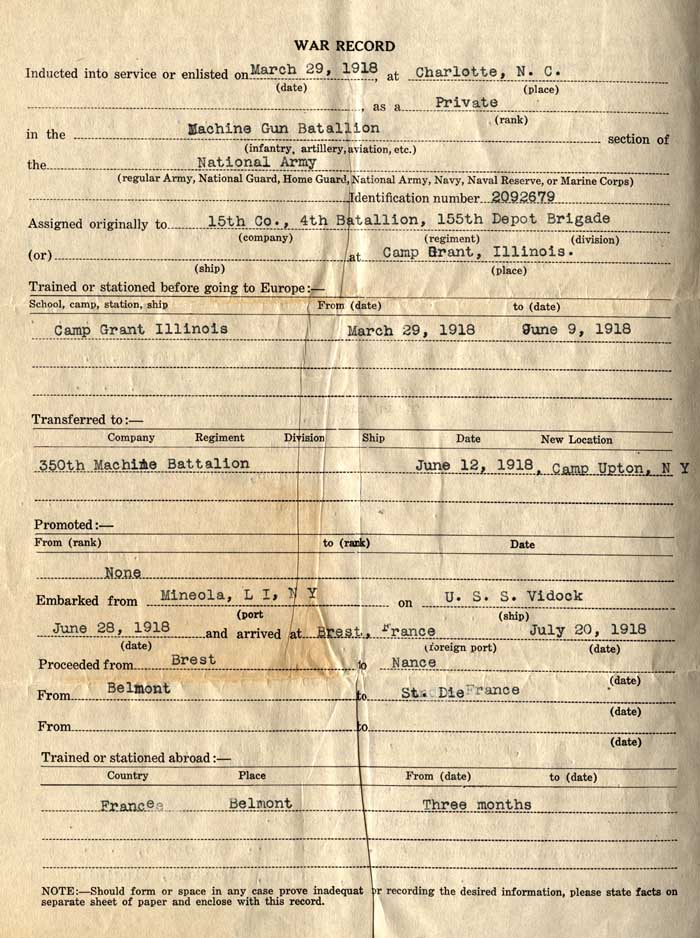 WAR RECORD
Inducted into service or enlisted on March 29, 1918, at Charlotte, N. C.
(date) (place)
, as a Private
(rank)
in the Machine Gun Batallion section of
(infantry, artillery, aviation, etc.)
the National Army
(regular Army, National Guard, Home Guard, National Army, Navy, Naval Reserve, or Marine Corps)
Identification number 2092679
Assigned originally to 15th Co., 4th Batallion, 155th Depot Brigade
(company) (regiment) (division)
(or) at Camp Grant, Illinois.
(ship) (place)
Trained or stationed before going to Europe:—
School, camp, station, ship From (date) to (date)
Camp Grant Illinois March 29, 1918 June 9, 1918
Transferred to:—
Company Regiment Division Ship Date New Location
350th Machine Battalion June 12, 1918, Camp Upton, N Y
Promoted:—
From (rank) to (rank) Date
None
Embarked from Mineola, L I, N Y on U. S. S. Vidock
(port (ship)
June 28, 1918 and arrived at Brest, France July 20, 1918
(date) (foreign port) (date)
Proceeded from Brest to Nance
(date)
From Belmont to St. Die France
(date)
From to
(date)
Trained or stationed abroad:—
Country Place From (date) to (date)
France Belmont Three months
NOTE:—Should form or space in any case prove inadequat or recording the desired information, please state facts on
separate sheet of paper and enclose with this record.